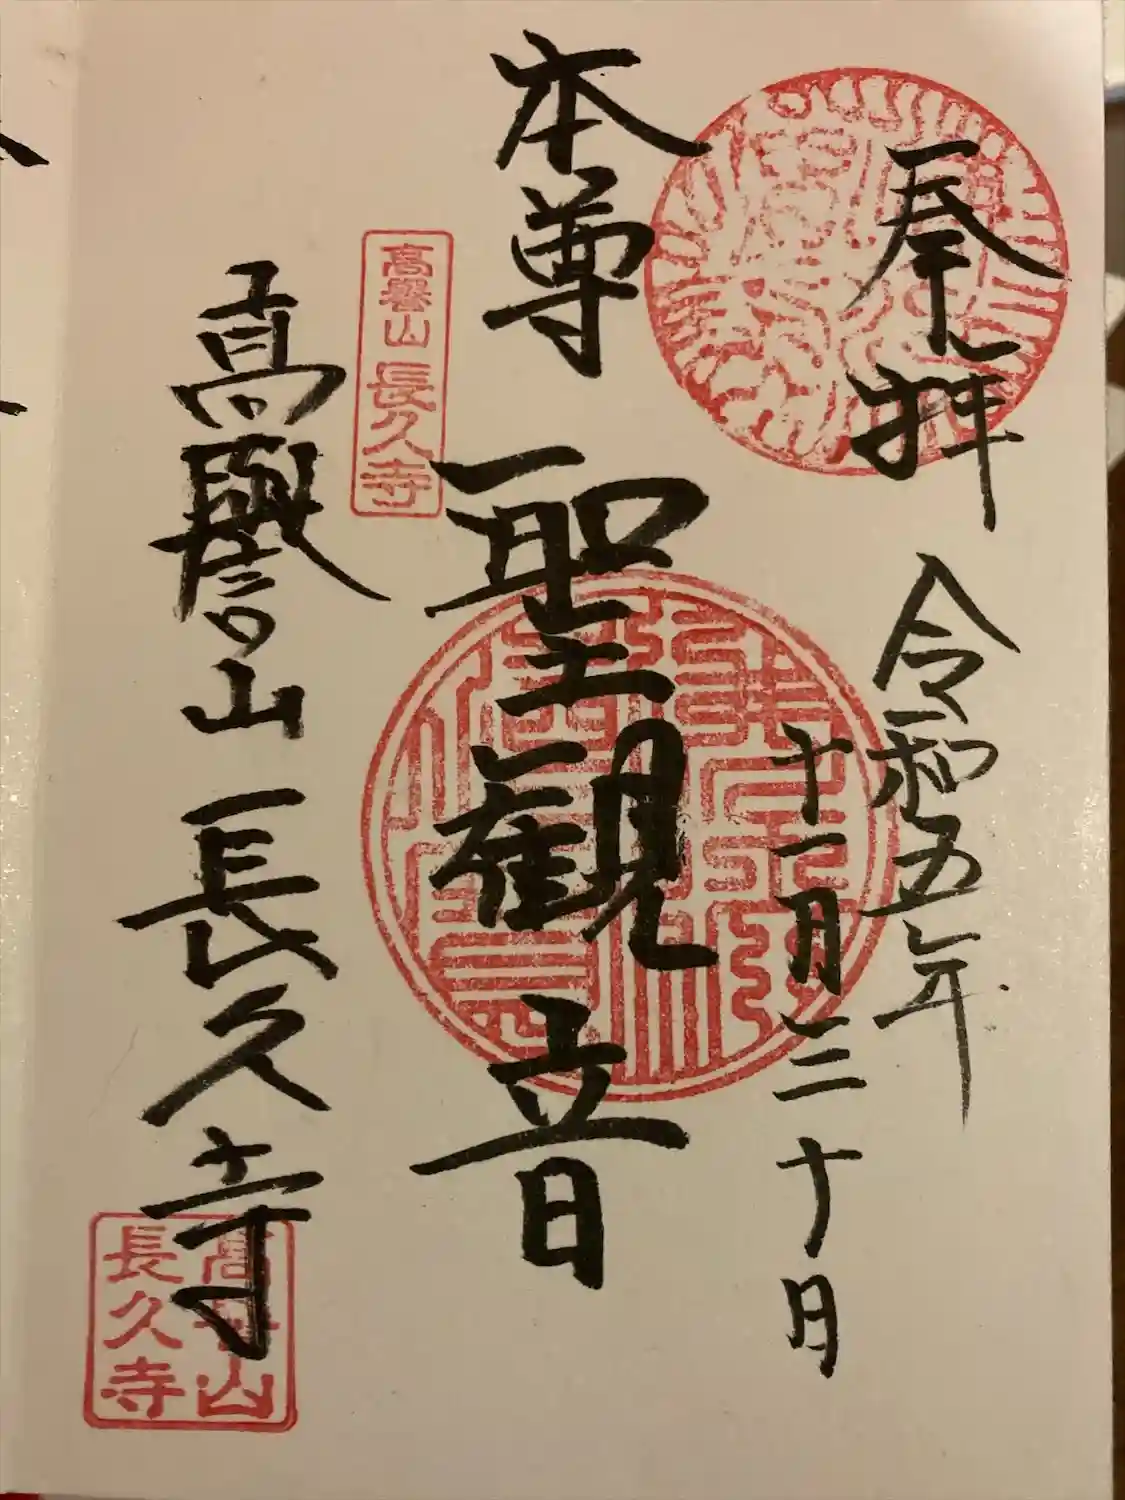 奉拝
令和五年
十一月三十日
本尊
聖観音
高譽山
長久寺
高譽山長久寺
高譽山
長久寺